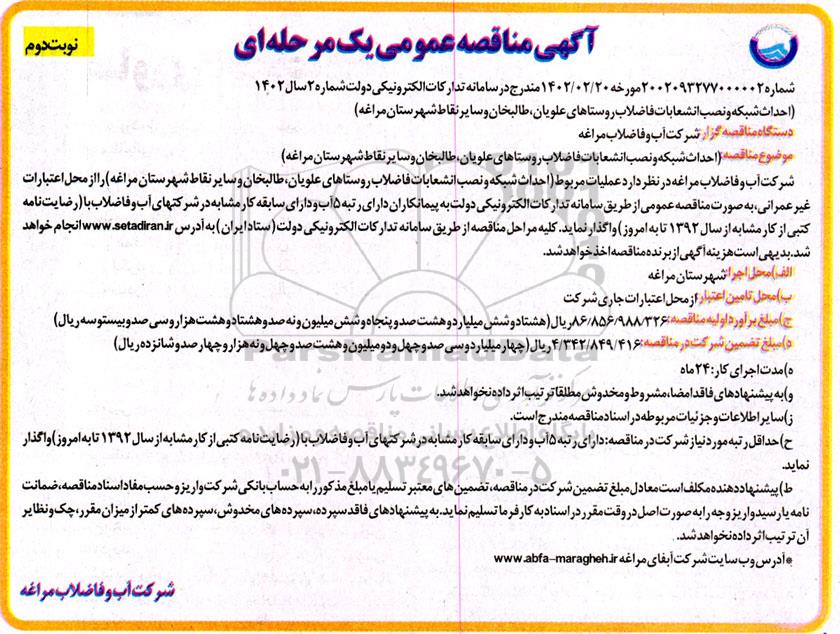 آگهی مناقصه عمومی یک مرحله‌ای
نوبت دوم
شماره ۲۰۰۲۰۹۳۲۷۷۰۰۰۰۰۲ مورخه ۱۴۰۲/۰۲/۲۰ مندرج در سامانه تدارکات الکترونیکی دولت شماره ۲ سال ۱۴۰۲
(احداث شبکه و نصب انشعابات فاضلاب روستاهای علویان، طالبخان و سایر نقاط شهرستان مراغه)
دستگاه مناقصه گزار: شرکت آب و فاضلاب مراغه
موضوع مناقصه: (احداث شبکه و نصب انشعابات فاضلاب روستاهای علویان، طالبخان و سایر نقاط شهرستان مراغه)
شرکت آب و فاضلاب مراغه در نظر دارد عملیات مربوط (احداث شبکه و نصب انشعابات فاضلاب روستاهای علویان، طالبخان و سایر نقاط شهرستان مراغه) را از محل اعتبارات
غیر عمرانی، به صورت مناقصه عمومی از طریق سامانه تدارکات الکترونیکی دولت به پیمانکاران دارای رتبه ۵ آب و دارای سابقه کار مشابه در شرکتهای آب و فاضلاب با (رضایت نامه
کتبی از کار مشابه از سال ۱۳۹۲ تا به امروز) واگذار نماید. کلیه مراحل مناقصه از طریق سامانه تدارکات الکترونیکی دولت (ستاد ایران) به آدرس www.setadiran.ir انجام خواهد
شد. بدیهی است هزینه آگهی از برنده مناقصه اخذ خواهد شد.
الف) محل اجرا: شهرستان مراغه
ب) محل تامین اعتبار: از محل اعتبارات جاری شرکت
ج) مبلغ برآورد اولیه مناقصه: ۸۶/۸۵۶/۹۸۸/۳۲۶ ریال (هشتاد و شش میلیارد و هشت صد و پنجاه و شش میلیون و نه صد و هشتاد و هشت هزار و سی صد و بیست و سه ریال)
د) مبلغ تضمین شرکت در مناقصه: ۴/۳۴۲/۸۴۹/۴۱۶ ریال (چهار میلیارد و سی صد و چهل و دو میلیون و هشت صد و چهل و نه هزار و چهار صد و شانزده ریال)
ه) مدت اجرای کار: ۲۴ ماه
و) به پیشنهادهای فاقد امضا، مشروط و مخدوش مطلقا ترتیب اثر داده نخواهد شد.
ز) سایر اطلاعات و جزئیات مربوطه در اسناد مناقصه مندرج است.
ح) حداقل رتبه مورد نیاز شرکت در مناقصه: دارای رتبه ۵ آب و دارای سابقه کار مشابه در شرکتهای آب و فاضلاب با (رضایت نامه کتبی از کار مشابه از سال ۱۳۹۲ تا به امروز) واگذار
نماید.
ط) پیشنهاد دهنده مکلف است معادل مبلغ تضمین شرکت در مناقصه، تضمین های معتبر تسلیم یا مبلغ مذکور را به حساب بانکی شرکت واریز و حسب مفاد اسناد مناقصه، ضمانت
نامه یا رسید واریز وجه را به صورت اصل در وقت مقرر در اسناد به کارفرما تسلیم نماید. به پیشنهادهای فاقد سپرده، سپرده های مخدوش، سپرده های کمتر از میزان مقرر، چک و نظایر
آن ترتیب اثر داده نخواهد شد.
*آدرس وب سایت شرکت آبفای مراغه www.abfa-maragheh.ir
شرکت آب و فاضلاب مراغه
ParsNamadData
۰۲۱-۸۸۳۴۹۶۷۰-۵